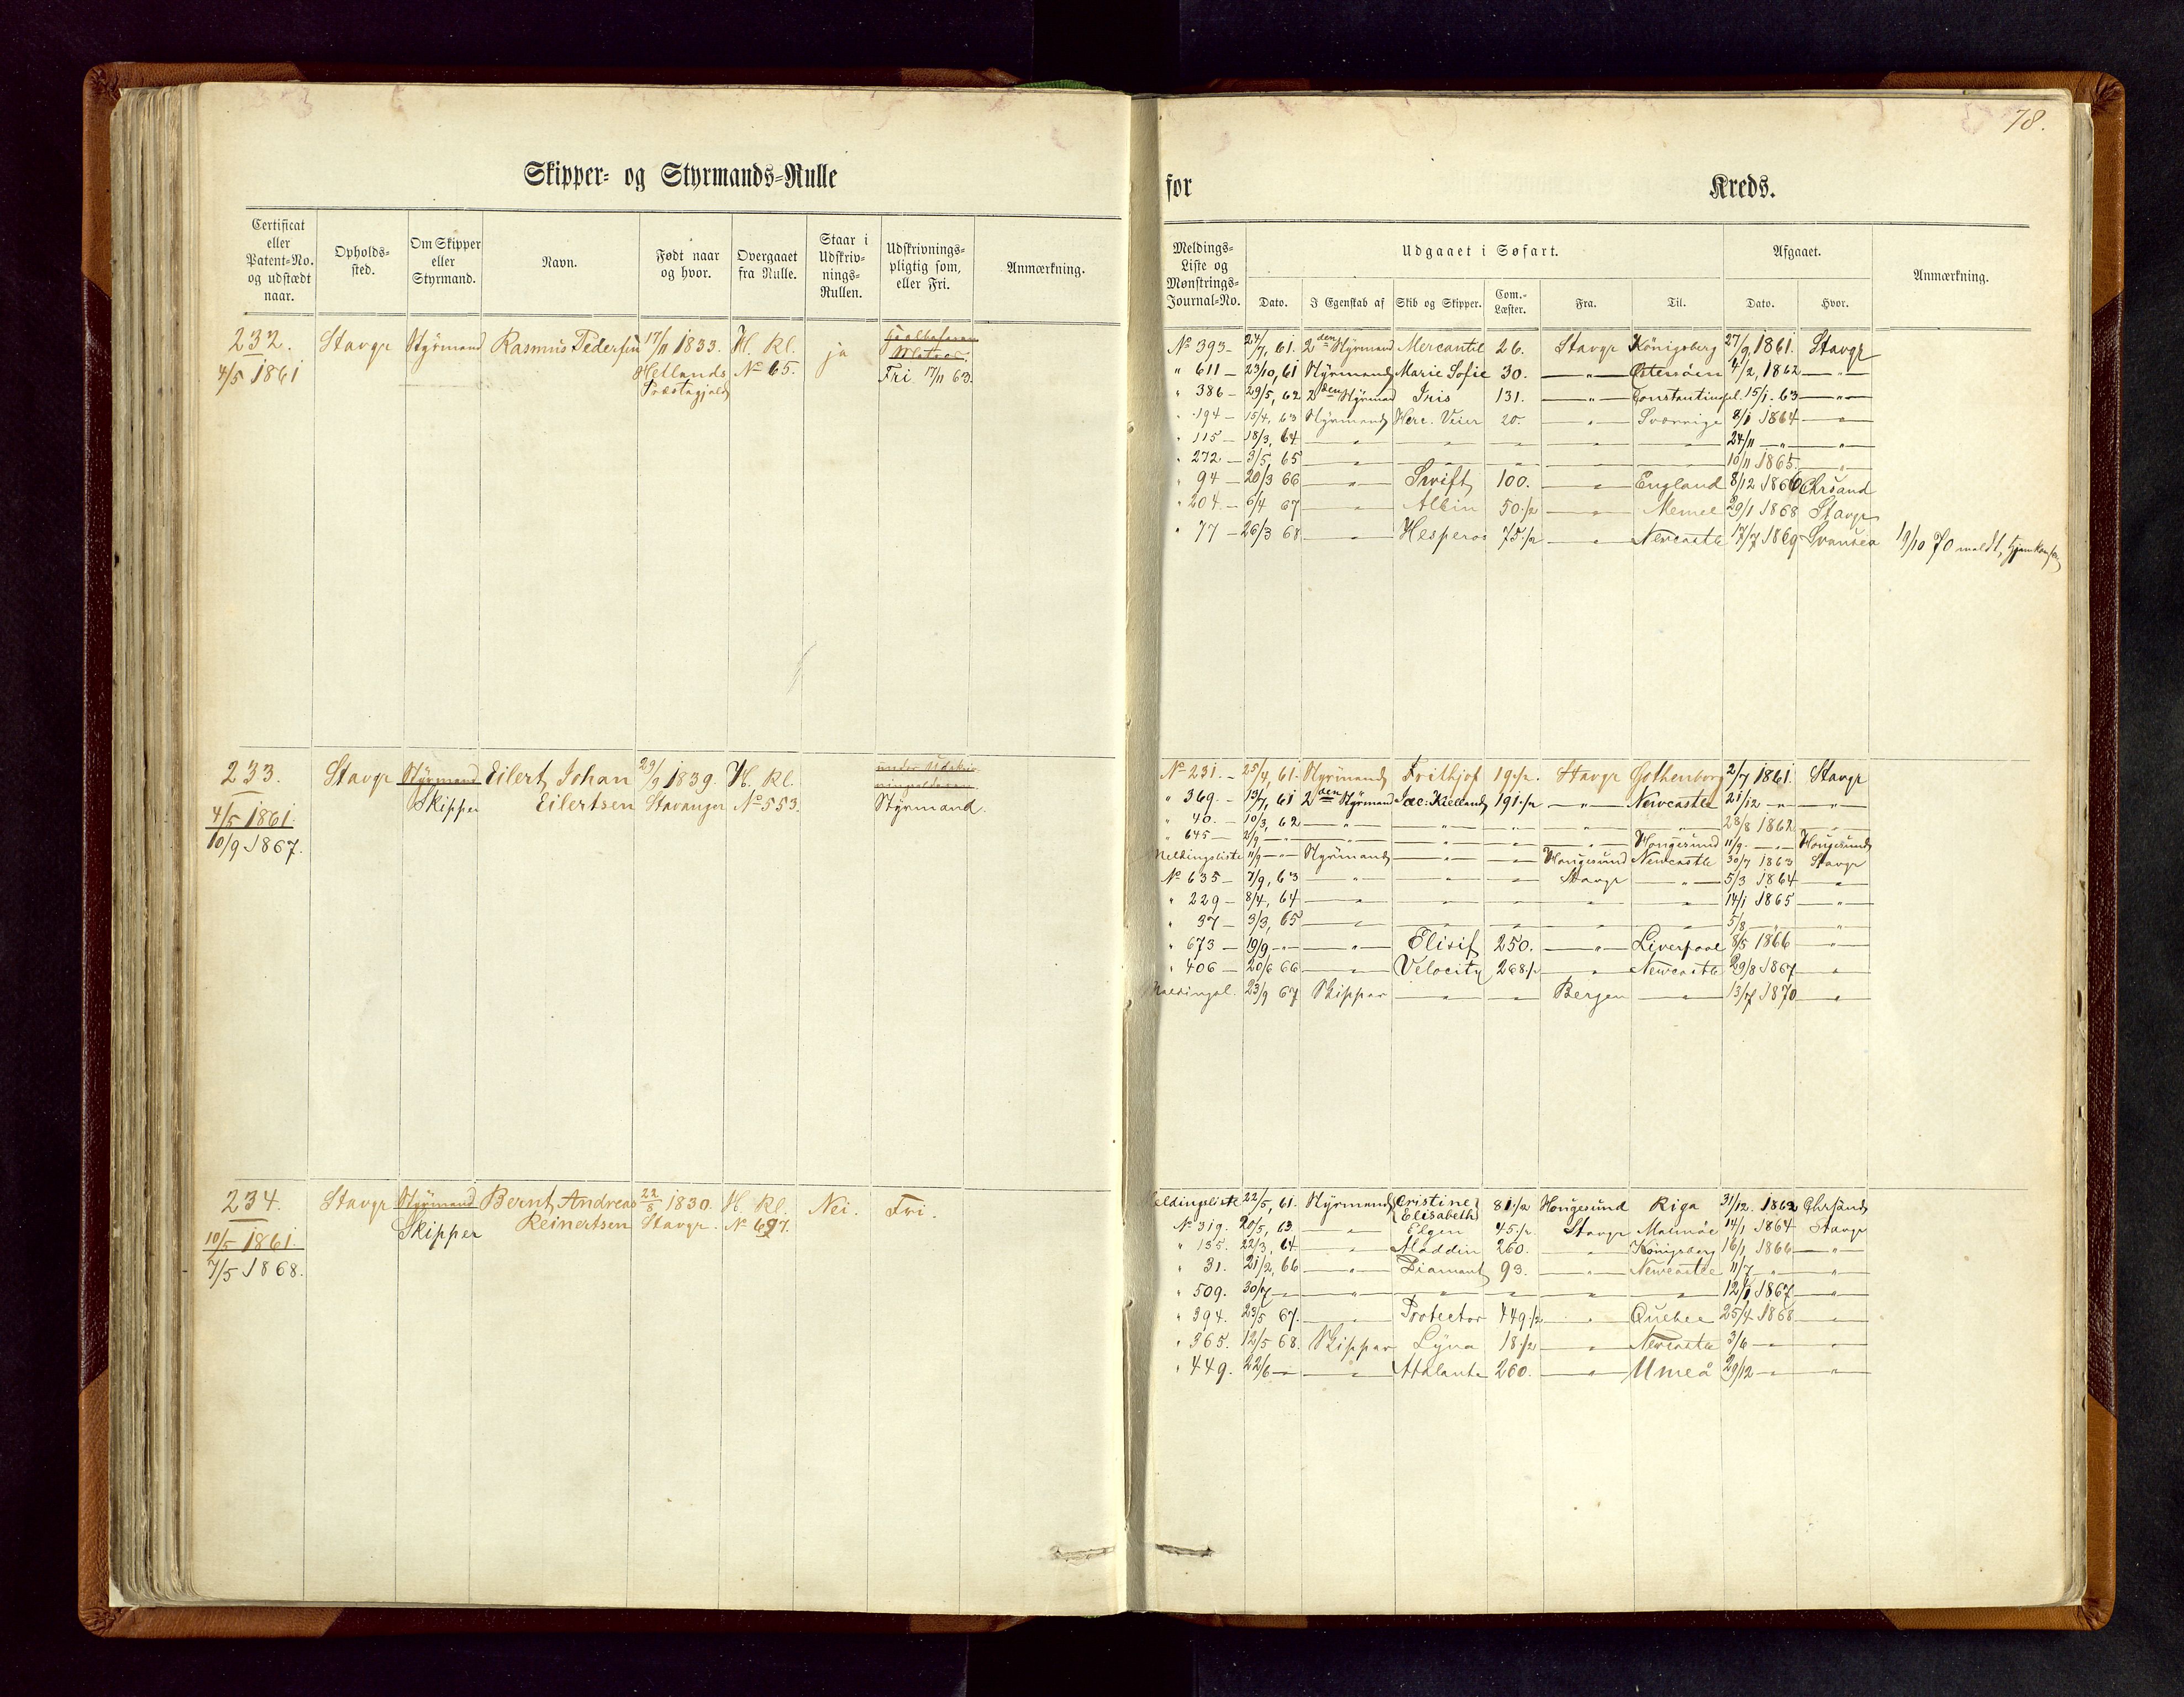 78.
Skipper- og Styrmands-Rulle
for Kreds.
Certificat eller Patent-No. og udstædt naar.
Opholds-sted.
Om Skipper eller Styrmand.
Navn.
Født naar og hvor.
Overgaaet fra Rulle.
Staar i Udskriv-nings-Rullen.
Udskrivnings-pligtig som, eller Fri.
Anmærkning.
Meldings-Liste og Mønstrings-Journal-No.
Udgaaet i Søfart.
Dato.
I Egenskab af
Skib og Skipper.
Com.-Læster.
Fra.
Til.
Afgaaet.
Dato.
Hvor.
Anmærkning.
232. Stavgr Styrmand Rasmus Pedersen 17/11 1833. H. Kl. ja
4/5 1861 Hetlands No 65. Matros.
Præstegjeld Fri 17/11 63.
No 393 - 24/7, 61. 2den Styrmand Mercantil 26. Stavgr Königsberg 27/9, 1861. Stavgr
" 611 - 23/10, 61 Styrmand Marie Sofie 30. " 4/2, 1862 "
" 386 - 29/5, 62 2den Styrmand Iris 131. " Constantinopel. 15/1. 63 "
" 194 - 15/4, 63 Styrmand Herc. Veier 20. " Sverrige 8/1 1864 "
" 115 - 18/3, 64 " " " " " 24/11 " "
" 272 - 3/5, 65 " " " " " 10/11 1865. "
" 94 - 20/3 66 " Swift 100. " England 8/12 1866 Chrsand
" 204 - 6/4 67 " Albin 50 1/2 " Memel 29/1 1868 Stavgr
" 77 - 26/3 68 " Hesperos 75 1/2 " Newcastle 17/7 1869 Svansea 19/10 70 meldt,
233. Stavgr Styrmand Eilert Johan 29/9 1839. H. Kl. under Udskriv-
Skipper Eilertsen Stavanger No 553. ningsalderen
4/5 1861. Styrmand.
10/9 1867.
No 231. - 25/4, 61. Styrmand Frithjof 19 1/2. Stavgr Gothenborg 2/7 1861. Stavgr
" 369. - 19/7, 61 2den Styrmand Jac: Kielland 191 1/2 " Newcastle 21/12 " "
" 40. - 10/3, 62 " " " " " 23/8 1862 "
" 645 - 2/9 " " " " " Hougesund 11/9. " Hougesund
Meldingsliste 11/9 " Styrmand " " Hougesund Newcastle 30/7 1863 Stavgr
No 635 - 7/9, 63 " " " Stavgr " 5/3 1864 "
" 229 - 8/4, 64 " " " " " 14/1 1865 "
" 37 - 3/3, 65 " " " " " 5/8 " "
" 673 - 19/9 " " Elisif 250. " Liverpool 8/5 1866 "
" 406 - 20/6 66 " Velocity 268 1/2 " Newcastle 29/8 1867 "
Meldingsl. 23/9 67 Skipper " " Bergen " 13/7 1870 "
234. Stavgr Styrmand Bernt Andreas 22/8 1830. H. Kl. Nei. Fri.
Skipper Reinertsen Stavgr. No 697.
10/5 1861.
7/5 1868.
Meldingsliste 22/5, 61. Styrmand Cristine Elisabeth 81 1/2 Hougesund Riga 31/12. 1862 Chrsand
No 319. 20/5, 63 " Elgen 45 1/2 Stavgr Malmøe 14/1 1864 Stavgr
" 135. 22/3, 64 " Aladdin 260. " Königsberg 16/1, 1866 "
" 31. 21/2, 66 " Diamant 93. " Newcastle 11/7 " "
" 509. 30/7 " " " " " " 12/1 1867 "
" 394. 23/5 67. " Protector 449 1/2 " Quebec 25/4 1868 "
" 365. 12/5 68. Skipper Lyna 18 1/2 " Newcastle 3/6 " "
" 449. 22/6 " " Atalante 260. " Umeå 29/12 " "